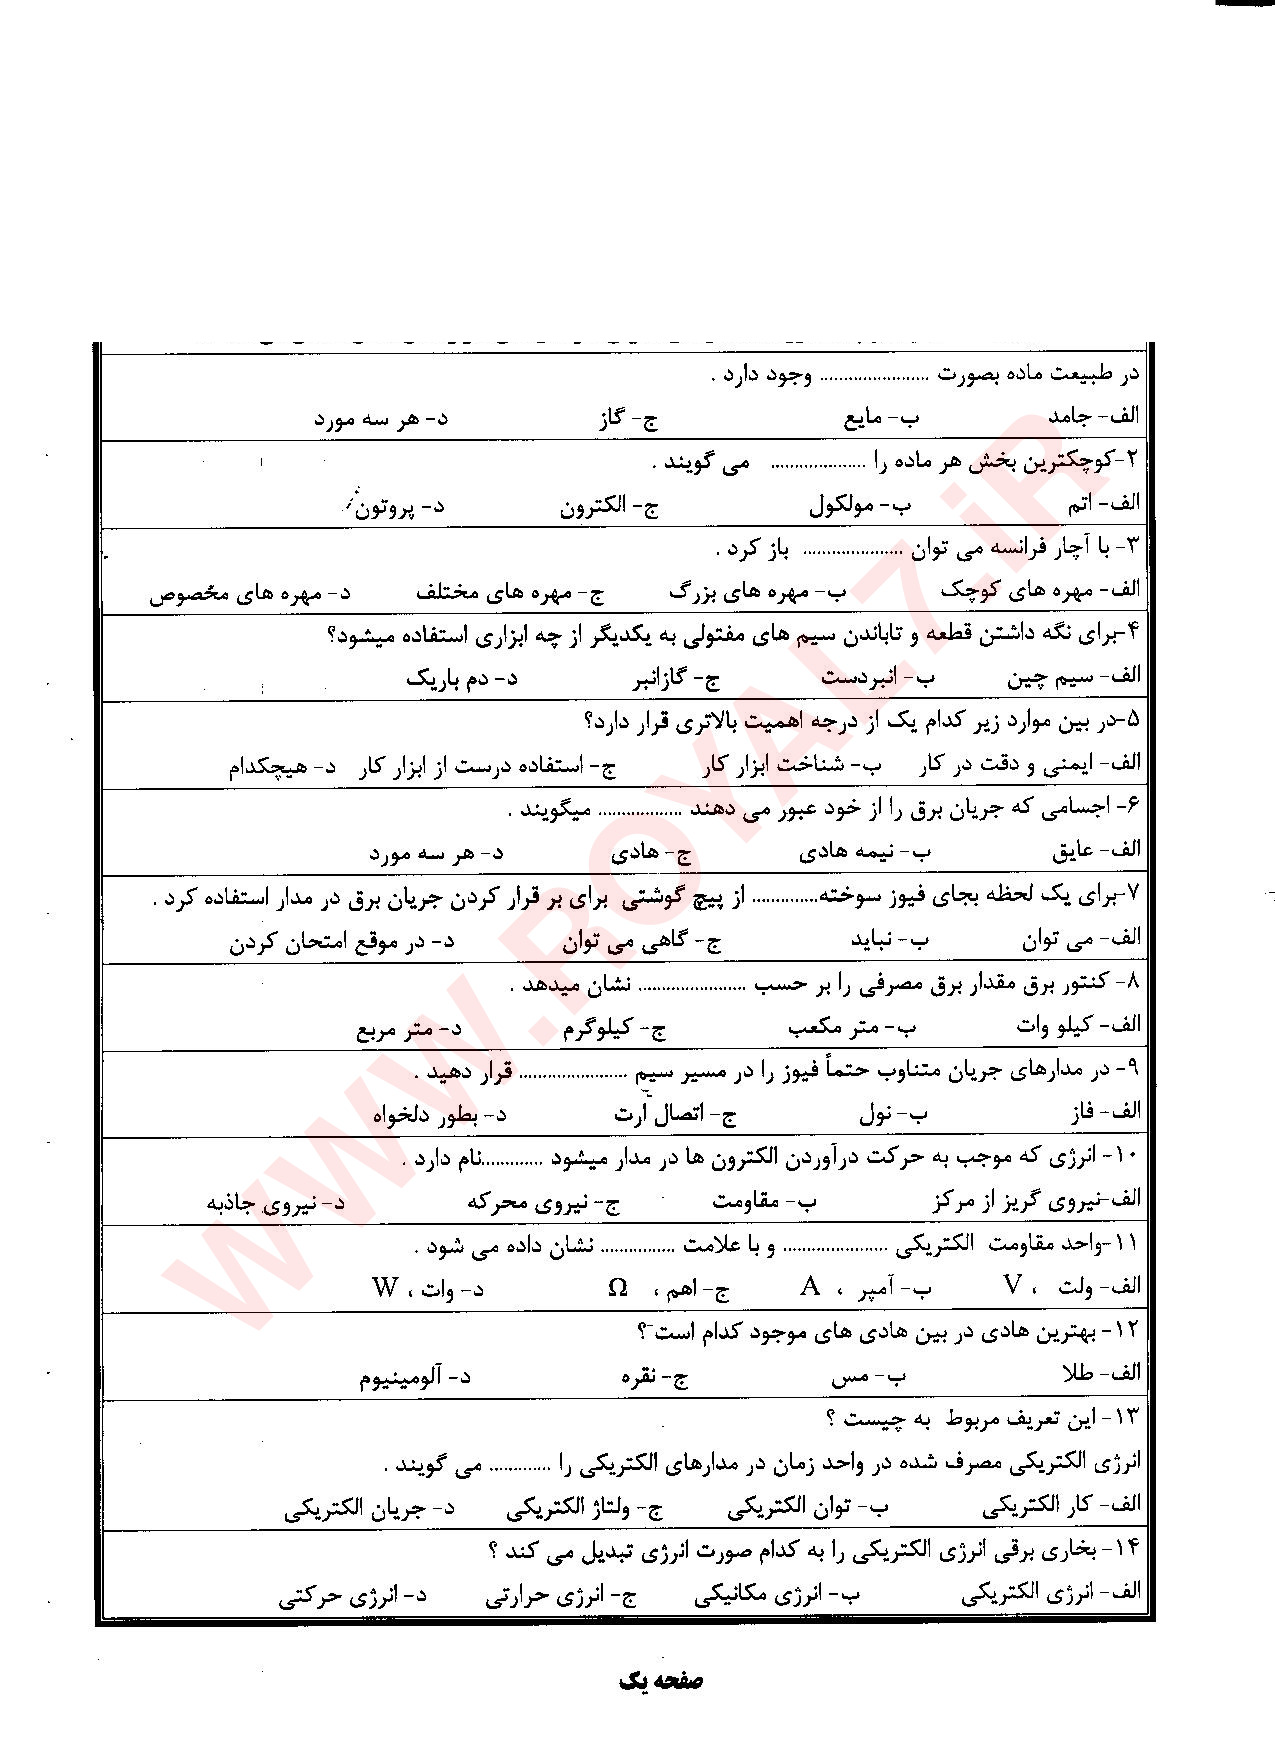 در طبیعت ماده بصورت ....................... وجود دارد .
الف- جامد ب- مایع ج- گاز د- هر سه مورد
۲-کوچکترین بخش هر ماده را .................... می گویند .
الف- اتم ب- مولکول ج- الکترون د- پروتون
۳- با آچار فرانسه می توان ..................... باز کرد .
الف- مهره های کوچک ب- مهره های بزرگ ج- مهره های مختلف د- مهره های مخصوص
۴-برای نگه داشتن قطعه و تاباندن سیم های مفتولی به یکدیگر از چه ابزاری استفاده میشود؟
الف- سیم چین ب- انبردست ج- گازانبر د- دم باریک
۵-در بین موارد زیر کدام یک از درجه اهمیت بالاتری قرار دارد؟
الف- ایمنی و دقت در کار ب- شناخت ابزار کار ج- استفاده درست از ابزار کار د- هیچکدام
۶- اجسامی که جریان برق را از خود عبور می دهند .................. میگویند .
الف- عایق ب- نیمه هادی ج- هادی د- هر سه مورد
۷-برای یک لحظه بجای فیوز سوخته.............. از پیچ گوشتی برای بر قرار کردن جریان برق در مدار استفاده کرد .
الف- می توان ب- نباید ج- گاهی می توان د- در موقع امتحان کردن
۸- کنتور برق مقدار برق مصرفی را بر حسب ....................... نشان میدهد .
الف- کیلو وات ب- متر مکعب ج- کیلوگرم د- متر مربع
۹- در مدارهای جریان متناوب حتماً فیوز را در مسیر سیم ....................... قرار دهید .
الف- فاز ب- نول ج- اتصال آرت د- بطور دلخواه
۱۰- انرژی که موجب به حرکت درآوردن الکترون ها در مدار میشود .............نام دارد .
الف-نیروی گریز از مرکز ب- مقاومت ج- نیروی محرکه د- نیروی جاذبه
۱۱-واحد مقاومت الکتریکی ...................... و با علامت ................ نشان داده می شود .
الف- ولت ، V ب- آمپر ، A ج- اهم ، Ω د- وات ، W
۱۲- بهترین هادی در بین هادی های موجود کدام است؟
الف- طلا ب- مس ج- نقره د- آلومینیوم
۱۳- این تعریف مربوط به چیست ؟
انرژی الکتریکی مصرف شده در واحد زمان در مدارهای الکتریکی را ............. می گویند .
الف- کار الکتریکی ب- توان الکتریکی ج- ولتاژ الکتریکی د- جریان الکتریکی
۱۴- بخاری برقی انرژی الکتریکی را به کدام صورت انرژی تبدیل می کند ؟
الف- انرژی الکتریکی ب- انرژی مکانیکی ج- انرژی حرارتی د- انرژی حرکتی
صفحه یک
WWW.ROYAL7.iR